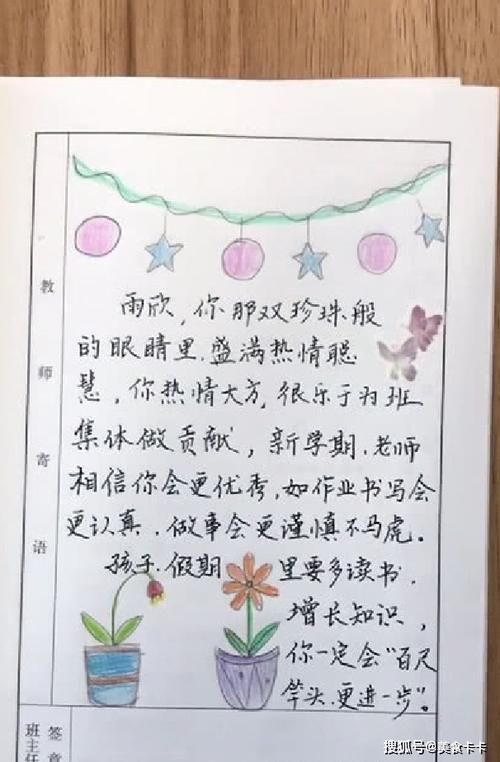 教师寄语
雨欣,你那双珍珠般
的眼睛里.盛满热情聪
慧,你热情大方,很乐于为班
集体做贡献,新学期.老师
相信你会更优秀,如作业书写会
更认真.做事会更谨慎不马虎。
孩子.假期里要多读书.
增长知识,
你一定会“百尺
竿头.更进一步”。
签章
班主任
搜狐号@美食卡卡